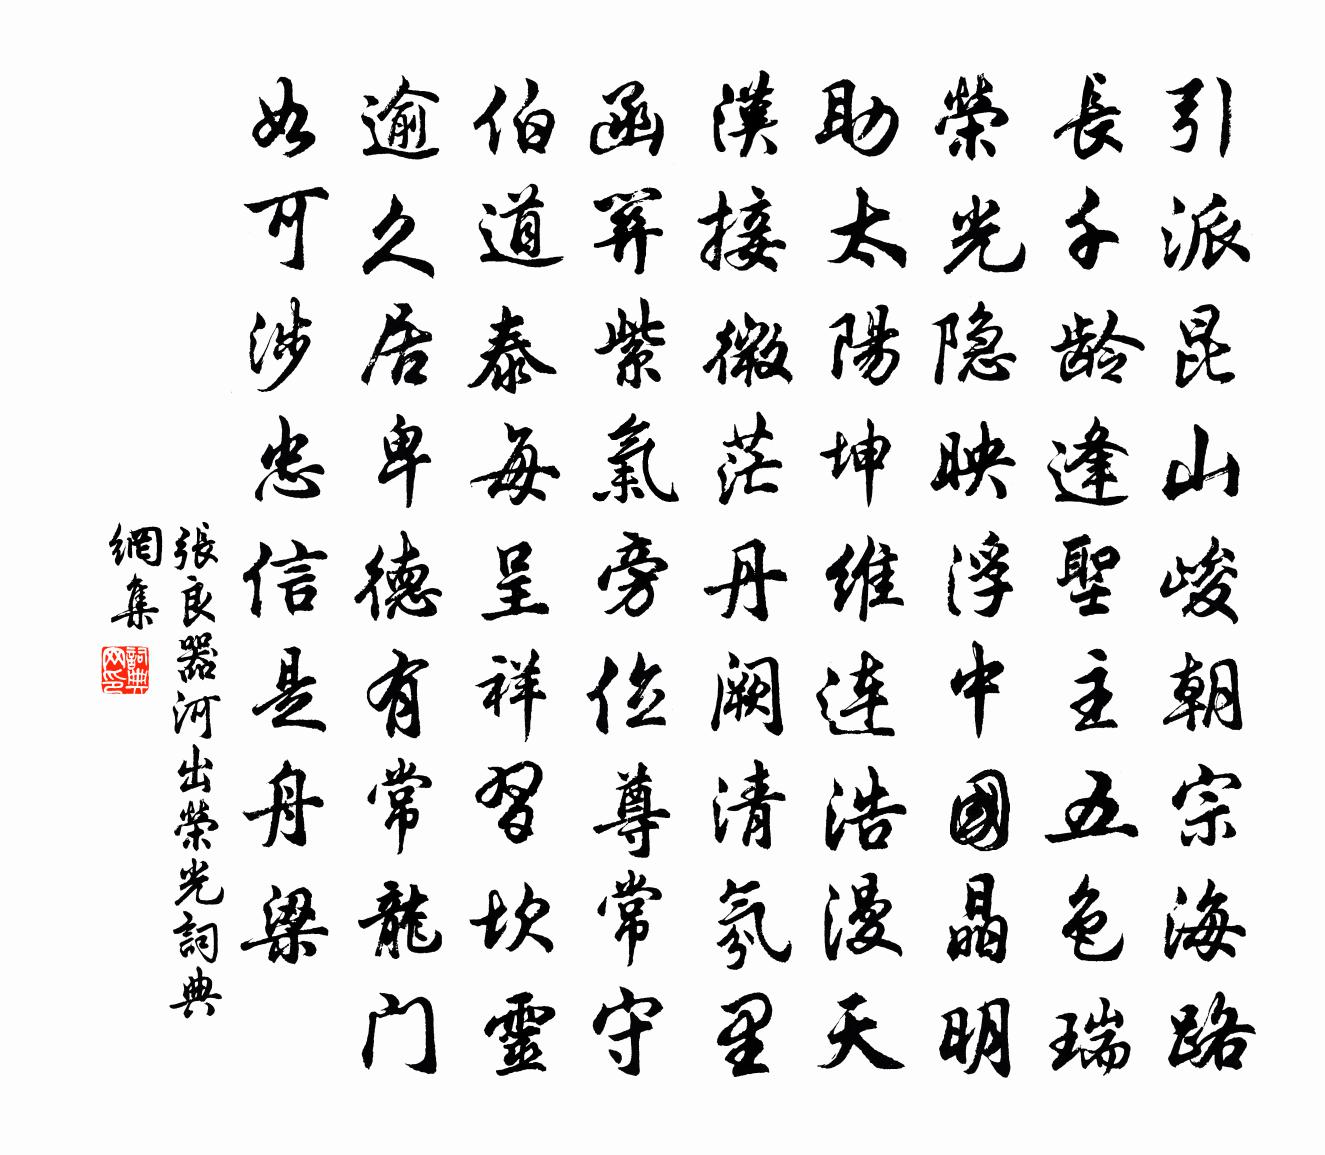 引派昆山峻朝宗海路
長千齡逢聖主五色瑞
榮光隐映浮中國晶明
助太陽坤维连浩漫天
漢接微茫丹闕清氛里
函關紫氣旁位尊常守
伯道泰每呈祥習坎靈
逾久居卑德有常龍门
如可涉忠信是舟梁
張良器河出榮光詞典
網集
詞典
网印